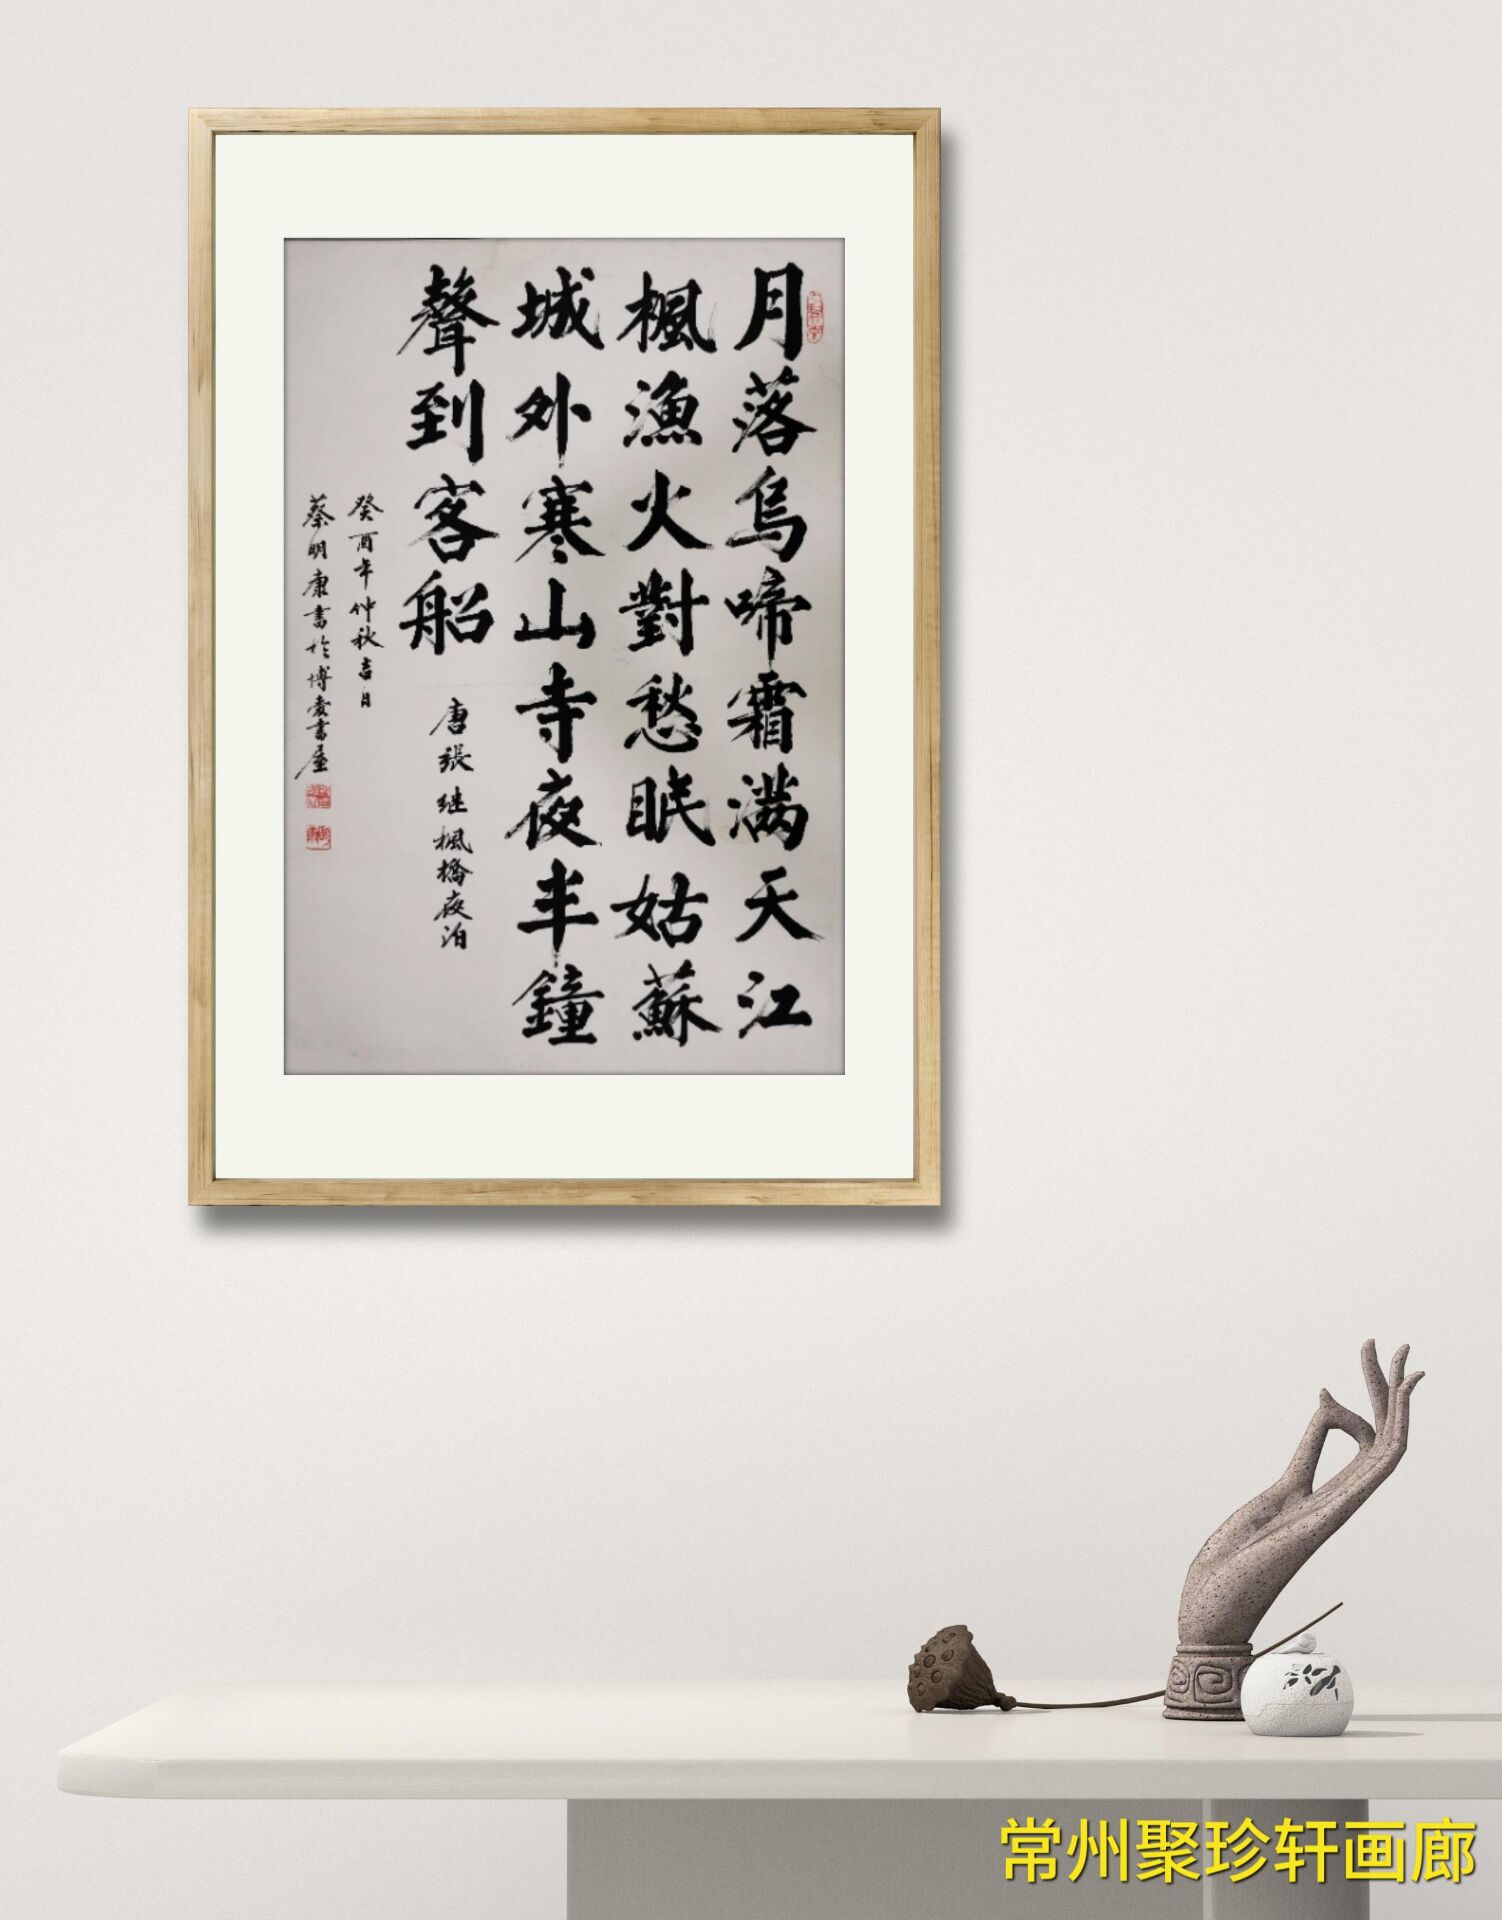 月落烏啼霜满天江
楓漁火對愁眠姑蘇
城外寒山寺夜半鐘
聲到客船
唐張继楓橋夜泊
癸酉年仲秋吉日
蔡明康書於博爱書屋
常州聚珍轩画廊